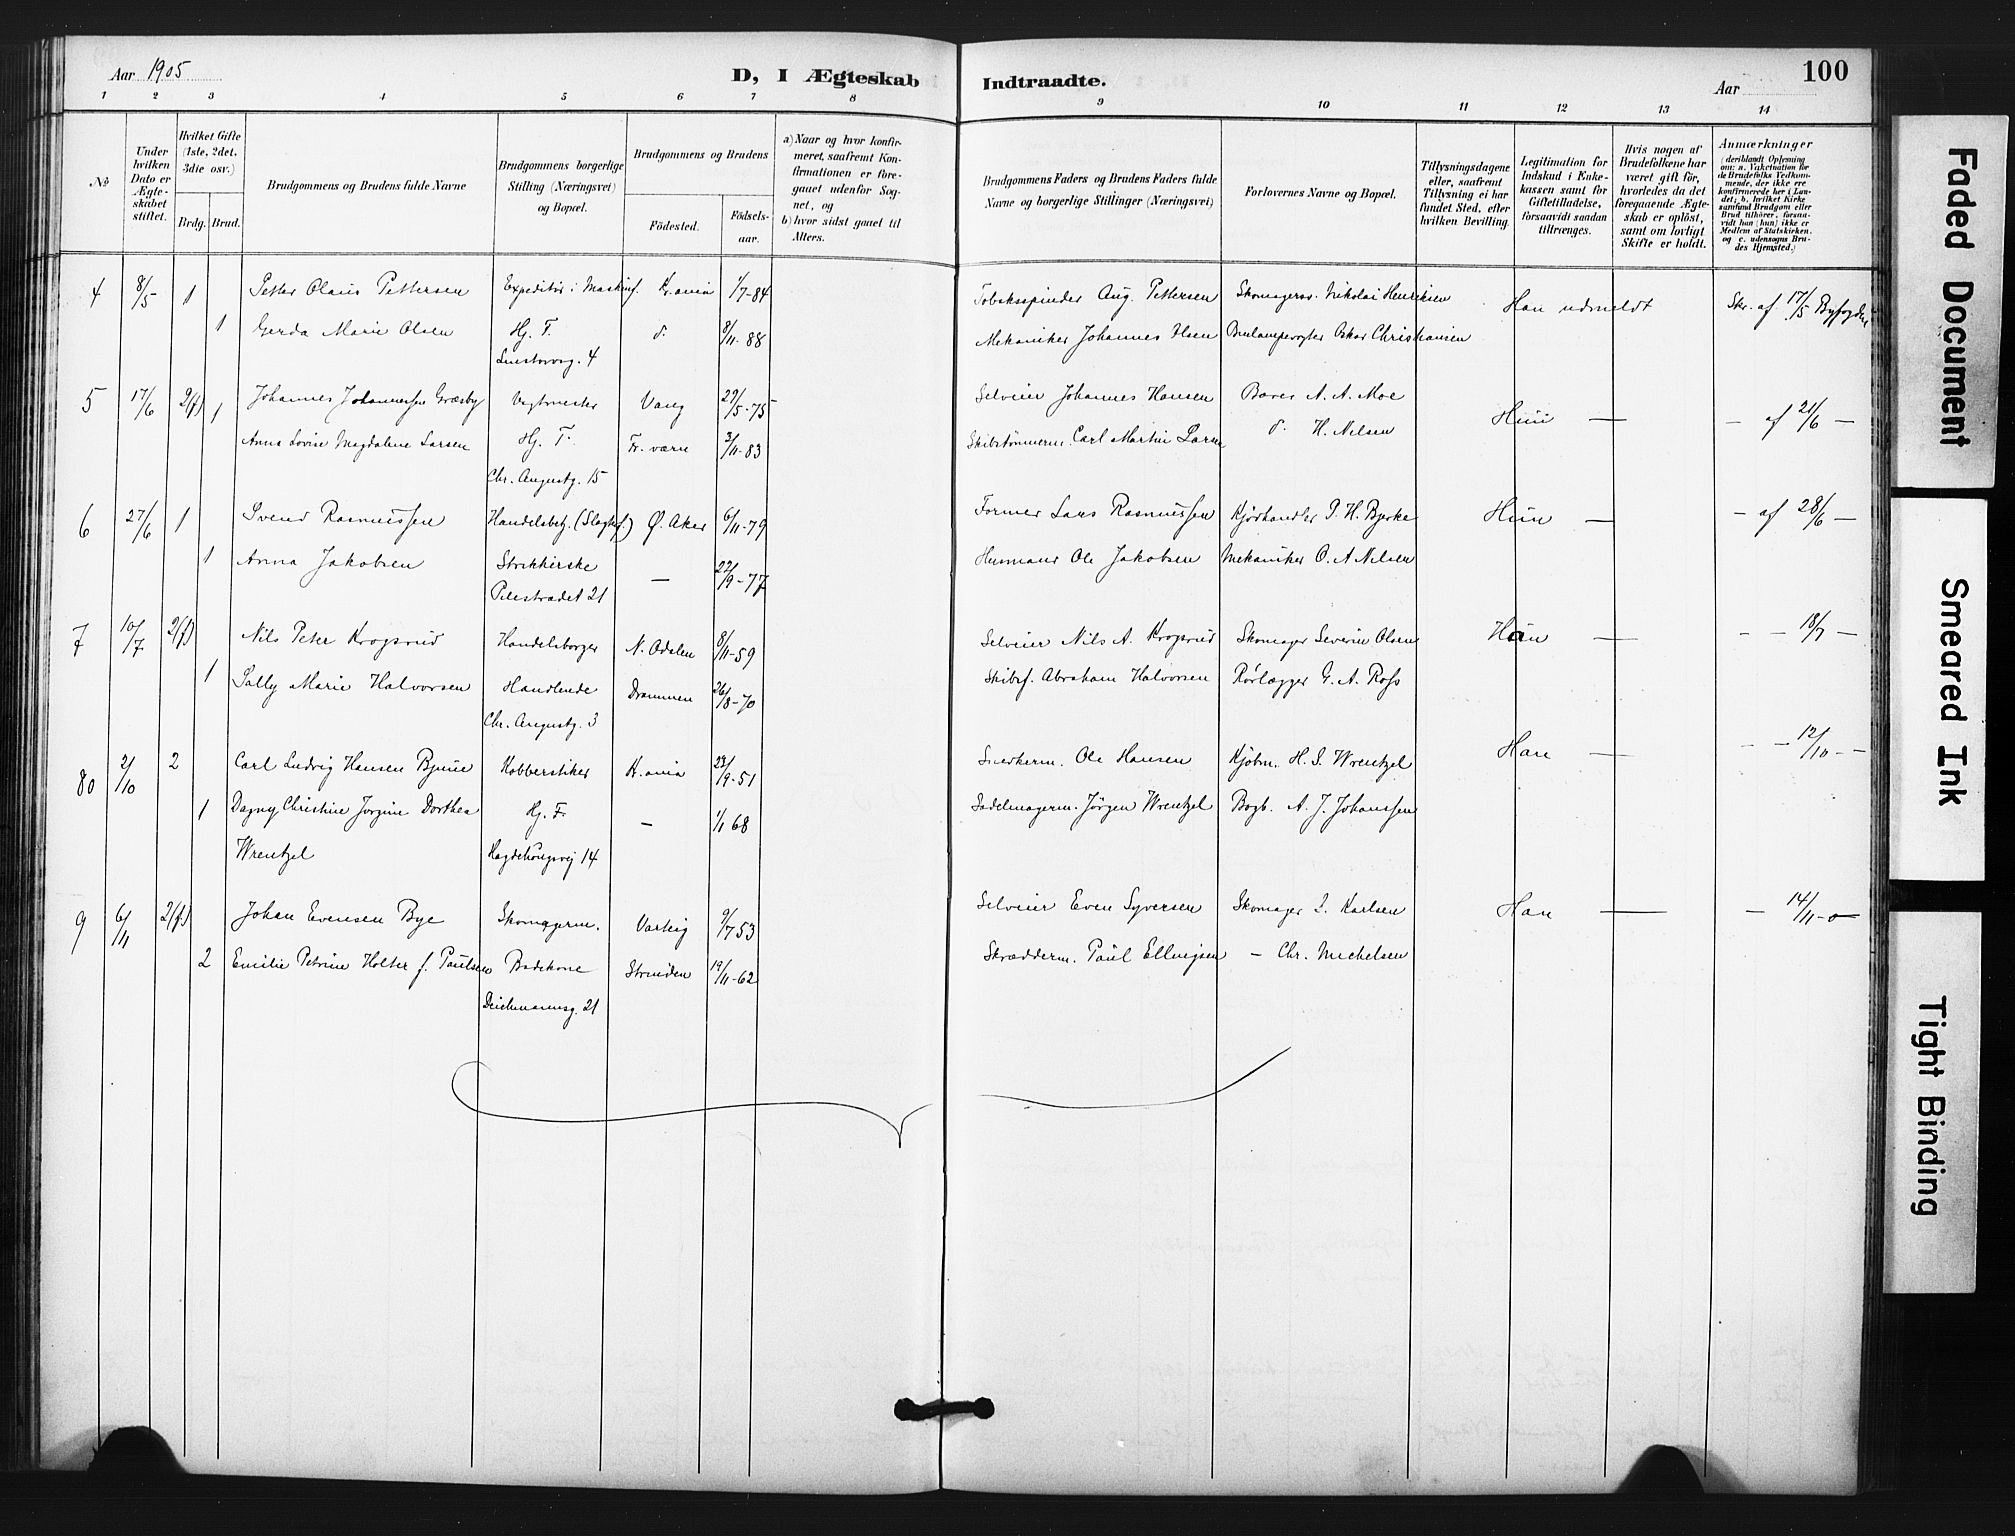 Aar 1905
D, I Ægteskab Indtraadte.
Aar
100
1 2 3 4 5 6 7 8 9 10 11 12 13 14
№
Under hvilken Dato er Ægte-skabet stiftet.
Hvilket Gifte (1ste, 2det, 3die osv.)
Brdg. Brud.
Brudgommens og Brudens fulde Navne
Brudgommens borgerlige Stilling (Næringsvei) og Bopæl.
Brudgommens og Brudens
Fødested. Fødsels-aar.
a) Naar og hvor konfir-meret, saafremt Kon-firmationen er fore-gaaet udenfor Sog-net, og
b) hvor sidst gaaet til Alters.
Brudgommens Faders og Brudens Faders fulde Navne og borgerlige Stillinger (Næringsvei)
Forlovernes Navne og Bopæl.
Tillysningsdagene eller, saafremt Tillysning ei har fundet Sted, efter hvilken Bevilling.
Legitimation for Indskud i Enke-kassen samt for Giftetilladelse, forsaavidt saadan tiltrænges.
Hvis nogen af Brudefolkene har været gift før, hvorledes da det foregaaende Ægte-skab er opløst, samt om lovligt Skifte er holdt.
Anmærkninger
(deriblandt Oplysning om: a. Vakcination for de Brudefolks Vedkom-mende, der ikke ere konfirmerede her i Lan-det; b. hvilket Kirke samfund Brudgom eller Brud tilhører, forsaa-vidt han (hun) ikke er Medlem af Statskirken, og c. udensogns Bru-des Hjemsted.)
4 8/5 1 Petter Olaus Pettersen Expeditør i Maskinf. Kr.ania 1/7-84 Tobaksspinder Aug. Pettersen Skomagersv. Nikolai Henriksen Han udmeldt Skr. af 17/5 Byfogden
1 Gerda Marie Olsen Hj. F. d. 8/11-88 Mekaniker Johannes Olsen Oskar Christiansen
4
5 17/6 2(f) 1 Johannes Johannessen Græsby Vegtmester Vang 29/5-75 Selveier Johannes Hansen Bører A. A. Moe Hun — — af 21/6 —
Anna Lovise Magdalene Larsen Hj. F. Fr. værn 3/11-83 Skibstømmerm. Carl Martin Larsen d. H. Nilsen
Chr. Augustg. 15
6 27/6 1 Svend Rasmussen Handelsbetj. (Slagterf.) Ø. Aker 6/11-79 Former Lars Rasmussen Kjørhandler P. H. Bjerke Hun — — af 28/6 —
1 Anna Jakobsen Strikkerske — 22/9-77 Husmand Ole Jakobsen Mekaniker O. A Nilsen
Pilestrædet 21
7 10/7 2(f) Nils Peter Krogsrud Handelsborger N. Odalen 8/11-59 Selveier Nils A. Krogsrud Skomager Severin Olsen Han — — — 18/7 —
1 Sally Marie Halvorsen Handlende Drammen 26/8-70 Skibsf. Abraham Halvorsen Rørlægger G. A. Ross
Chr. Augustg. 3
80 2/10 2 Carl Ludvig Hansen Bjune Kobberstiker Kr.ania 23/9-51 Snedkerm. Ole Hansen Kjøbm. H. S. Wrentzel Han — — — 12/10 — —
1 Dagny Christine Jørgine Dorthea Hj. F. — 1/1 68 Sadelmagerm. Jørgen Wrentzel Bogb. A. J. Johanssen
Wrentzel 14
9 6/11 2(f.) Johan Evensen Bye Skomagerm. Varteig 9/7 53 Selveier Even Syversen Skomager L. Karlsen Han — — 14/11-0—
2 Emilie Petrine Holter f. Paulsen Badekone Strinden 19/11-62 Skrædderm. Paul Ellingsen — Chr. Michelsen
Deichmannsg. 21
Faded Document
Smeared Ink
Tight Binding